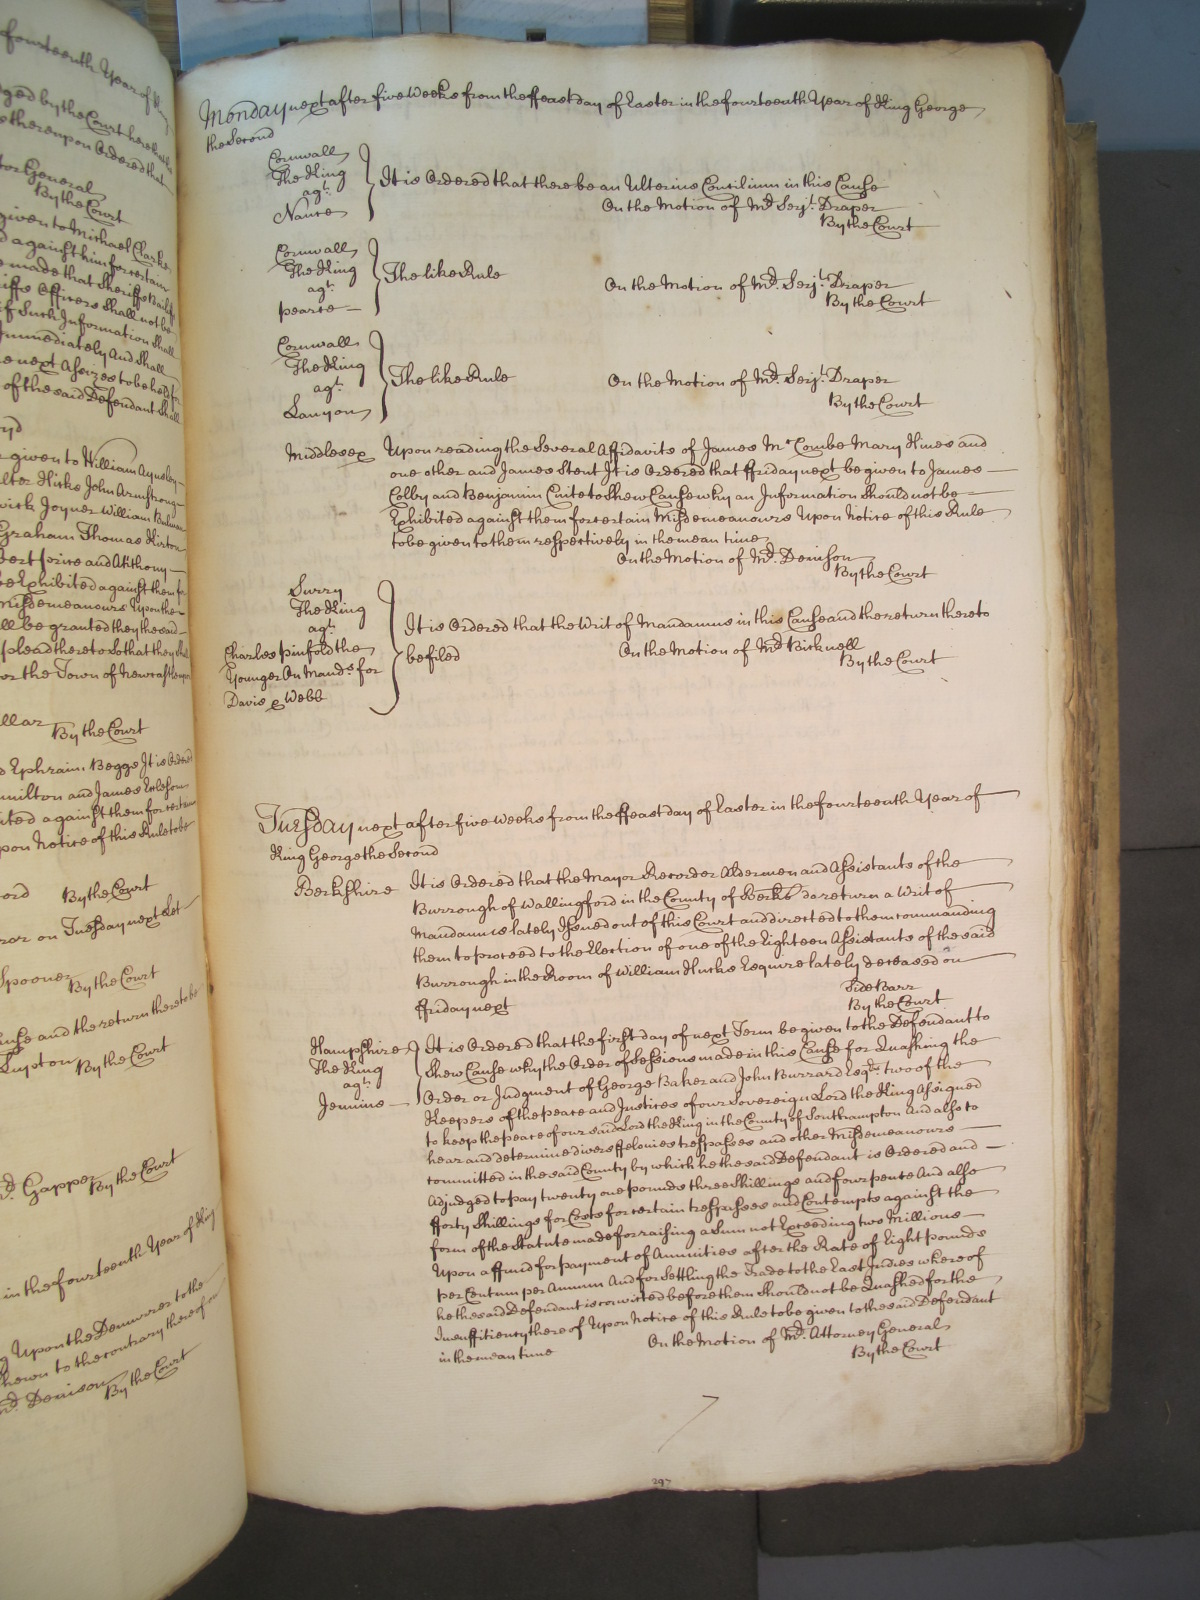 fourteenth Year of King
ged by the Court here that
s thereupon Ordered that
tor General
By the Court
given to Michael Clarke
d against him for certain
e made that Sheriffs Bailiffs
iffs Officers Shall not be
if Such Information Shall
Immediately And Shall
e next Assizes to be held for
of the said Defendant Shall
given to William Aynsley
lter Hicks John Armstrong
wick Joyner William Bulman
Graham Thomas Kirton
and Anthony
be Exhibited against them for
Misdemeanours Upon the
ll be granted they the said
plead thereto So that they
or the Town of Newcastle upon
llar
By the Court
d Ephraim Beggs It is Ordered
milton and James
ited against them for certain
pon Notice of this Rule to be
ord By the Court
ror on Tuesday next Let
Spooner By the Court
ause and the return thereto be
Lupton By the Court
Mr. Gapper By the Court
in the fourteenth Year of King
g Upon the Demurrer to the
Shewn to the contrary thereof on
Mr. Denison By the Court
Monday next after five Weeks from the ffeast day of Easter in the fourteenth Year of King George
the Second
Cornwall
The King
agt.
Nance
It is Ordered that there be an Ulterius Concilium in this Cause
On the Motion of Mr. Serjt. Draper
By the Court
Cornwall
The King
agt.
pearse
The like Rule
On the Motion of Mr. Serjt. Draper
By the Court
Cornwall
The King
agt.
Lanyon
The like Rule
On the Motion of Mr. Serjt. Draper
By the Court
Middlesex Upon reading the Several Affidavits of James McCombe Mary Hines and
one other and James Stent It is Ordered that ffriday next be given to James
Colby and Benjamin Cuite to Shew Cause why an Information Should not be
Exhibited against them for certain Misdemeanours Upon Notice of this Rule
to be given to them respectively in the mean time
On the Motion of Mr. Denison
By the Court
Surry
The King
agt.
Charles Pinfold the
Younger On Mands. for
Davis & Webb
It is Ordered that the Writ of Mandamus in this Cause and the return thereto
be filed
On the Motion of Mr. Bicknell
By the Court
Tuesday next after five weeks from the ffeast day of Easter in the fourteenth Year of
King George the Second
Berkshire It is Ordered that the Mayor Recorder Aldermen and Assistants of the
Burrough of Wallingford in the County of Berks do return a Writ of
Mandamus lately Issued out of this Court and directed to them commanding
them to proceed to the Election of one of the Eighteen Assistants of the said
Burrough in the Room of William Hucks Esquire lately deceased on
ffriday next
Side Barr
By the Court
Hampshire
The King
agt.
Jennins
It is Ordered that the first day of next Term be given to the Defendant to
Shew Cause why the Order of Sessions made in this Cause for Quashing the
Order or Judgment of George Baker and John Burrard Esqrs. two of the
Keepers of the peace and Justices of our Sovereign Lord the King Assigned
to keep the peace of our said Lord the King in the County of Southampton And also to
hear and determine divers ffelonies trespasses and other Misdemeanours
committed in the said County by which he the said Defendant is Ordered and
Adjudged to pay twenty one pounds three Shillings and four pence And also
fforty Shillings for Costs for certain trespasses and Contempts against the
form of the Statute made for raising a Sum not Exceeding two Millions
Upon a ffund for payment of Annuities after the Rate of Eight pounds
per Centum per Annum And for Settling the Trade to the East Indies whereof
he the said Defendant is convicted before them Should not be Quashed for the
Insufficiency thereof Upon Notice of this Rule to be given to the said Defendant
in the mean time
On the Motion of Mr. Attorney General
By the Court